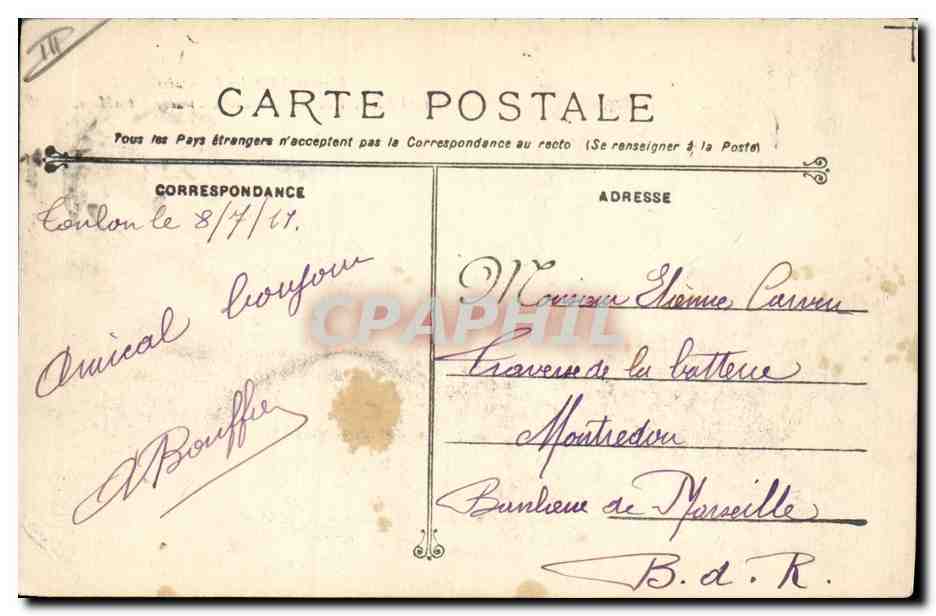 III
CARTE POSTALE
Tous les Pays étrangers n'acceptent pas la Correspondance au recto (Se renseigner à la Poste)
CORRESPONDANCE
Toulon le 8/7/11.
Amical bonjour
A Bouffier
ADRESSE
Monsieur Etienne Carvin
Traverse de la batterie
Montredon
Banlieue de Marseille
B. d. R.
CPAPHIL